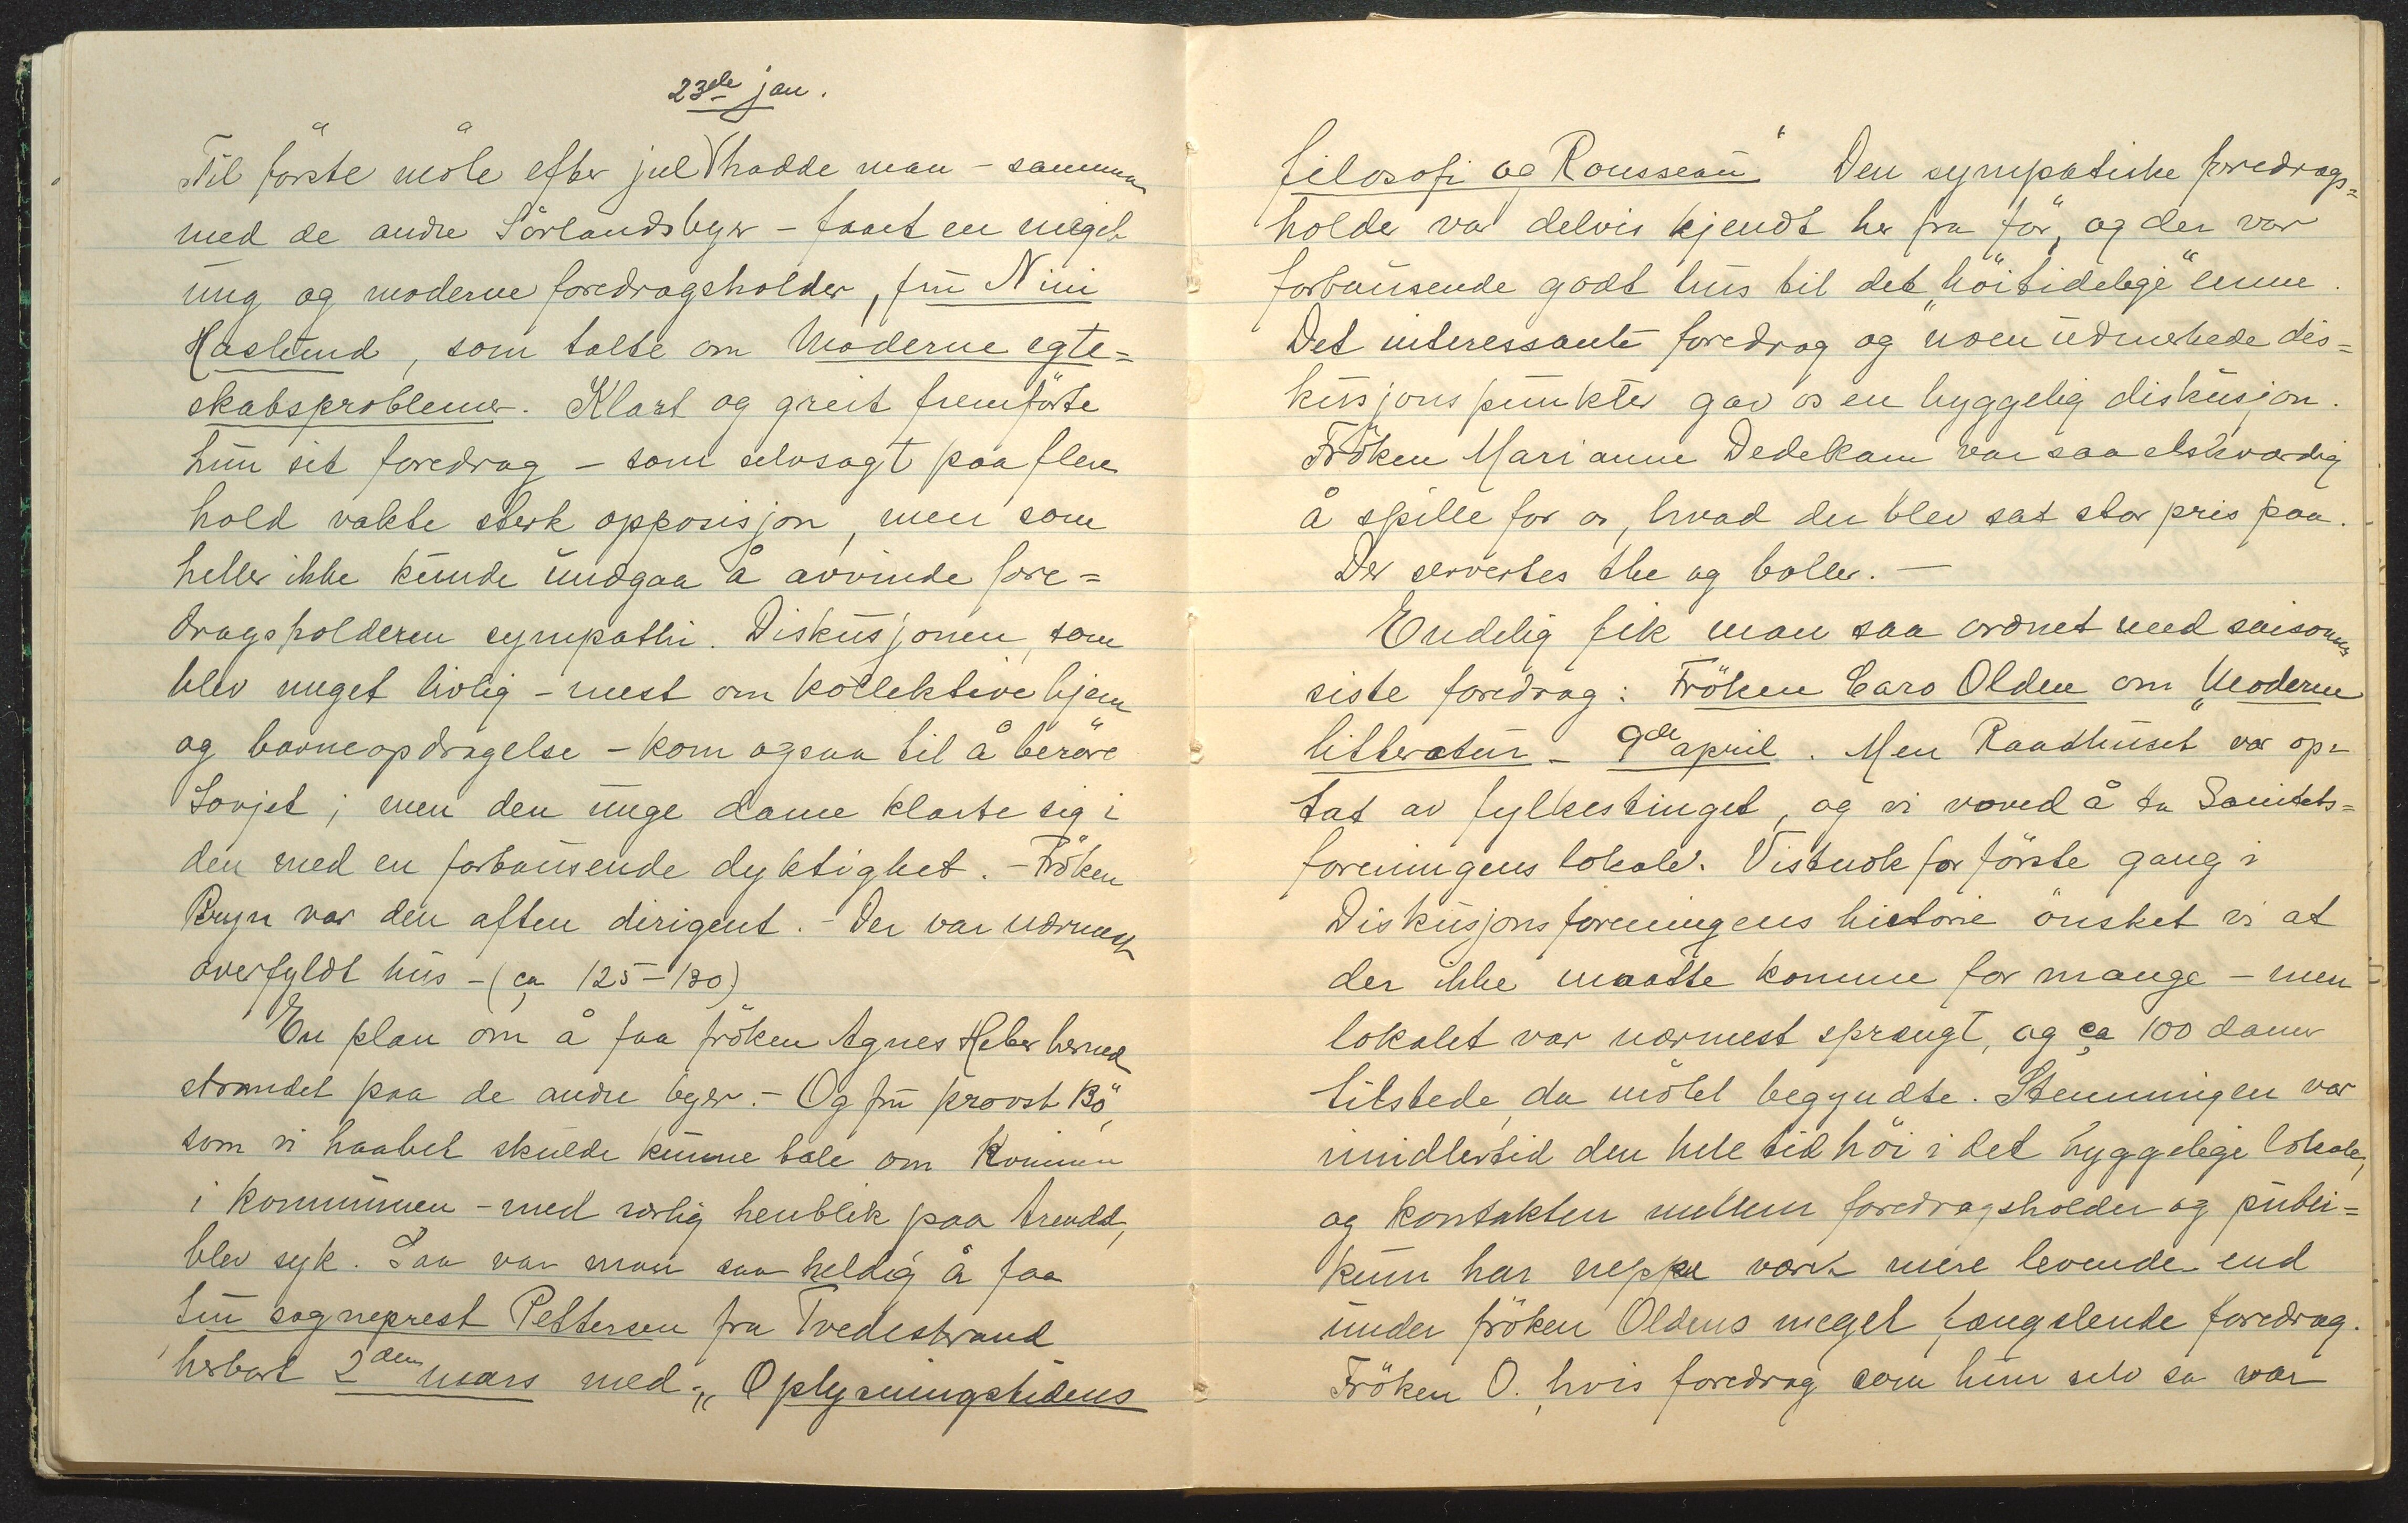 23de jan.
Til förste möte efter jul hadde man - sammen
med de andre Sörlandsbyer - faaet en meget
ung og moderne foredragsholder, fru Nini
Haslund, som talte om Moderne egte=
skabsproblemer. Klart og greit fremförte
hun sit foredrag - som selvsagt paa flere
hold vakte sterk opposisjon, men som
heller ikke kunde undgaa å avvinde fore=
dragsholderen sympathi. Diskusjonen, som
blev meget livlig - mest om kollektive hjem
og barneopdragelse - kom ogsaa til å beröre
Sovjet; men den unge dame klarte sig i
den med en forbausende dyktighet. - Fröken
Bryn var den aften dirigent. - Der var nærmest
overfyldt hus - (ca 125-130)
En plan om å faa fröken Agnes Heber herned
strandet paa de andre byer. - Og fru provst Bö,
som vi haabet skulde kunne tale om Kvinnen
i kommunen - med særlig henblik paa Arendal,
blev syk. Saa var man saa heldig å faa
fru sogneprest Pettersen fra Tvedestrand
herbort 2den mars med „Oplysningstidens
filosofi og Rousseau" Den sympatiske foredrags=
holder var delvis kjendt her fra för, og der var
forbausende godt hus til det „höitidelige" emne.
Det interessante foredrag og noen udmerkede dis=
kusjonspunkter gav os en hyggelig diskusjon.
Fröken Marianne Dedekam var saa elskværdig
å spille for os, hvad der blev sat stor pris paa.
Der servertes the og boller. -
Endelig fik man saa ordnet med saisonens
siste foredrag: Fröken Caro Olden om „Moderne
litteratur - 9de april. Men Raadhuset var op=
tat av fylkestinget, og vi voved å ta Sanitets=
foreningens lokale. Vistnok for förste gang i
Diskusjonsforeningens historie önsket vi at
der ikke maatte komme for mange - men
lokalet var nærmest sprængt, og ca 100 damer
tilstede, da mötet begyndte. Stemningen var
imidlertid den hele tid höi i det hyggelige lokale,
og kontakten mellem foredragsholder og publi=
kum har neppe vært mere levende end
under fröken Oldens meget fængslende foredrag.
Fröken O., hvis foredrag som hun selv sa var